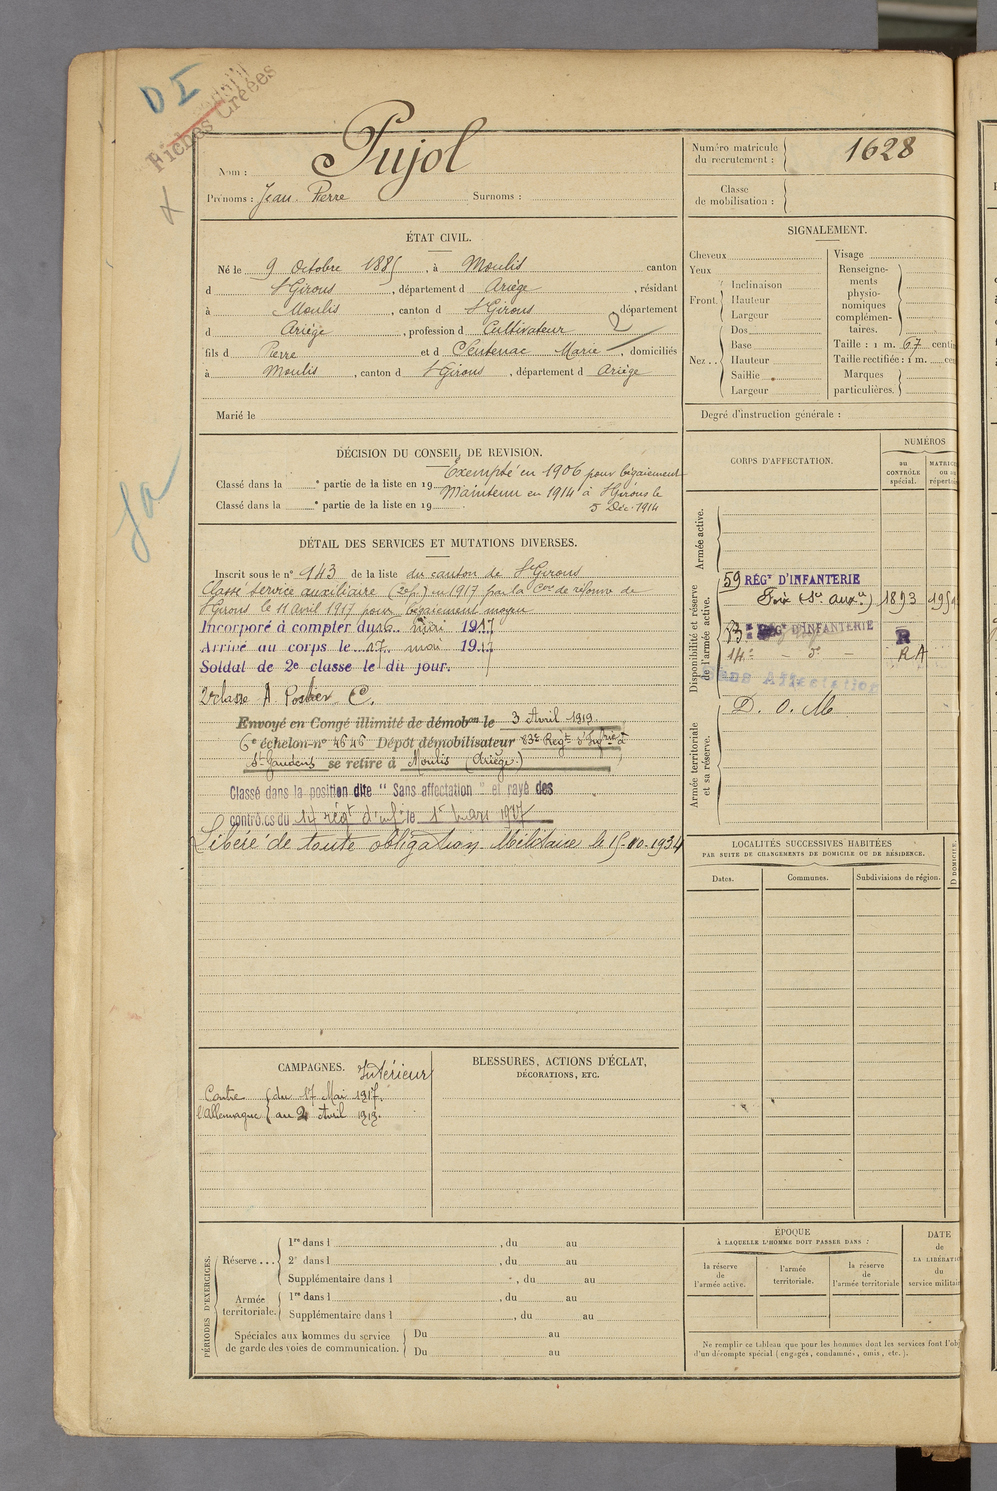 D I
Fiches Créées
Nom : Pujol
Prénoms : Jean Pierre Surnoms :
Numéro matricule du recrutement : 1628
Classe de mobilisation :
ÉTAT CIVIL.
Né le 9 Octobre 1885, à Moulis canton
d St Girons, département d Ariège, résidant
à Moulis, canton d St Girons, département
d Ariège, profession d Cultivateur 2
fils d Pierre et d Sentenac Marie, domiciliés
à Moulis, canton d St Girons, département d Ariège
Marié le
SIGNALEMENT.
Cheveux
Yeux
Front. Inclinaison
Hauteur
Largeur
Nez... Dos
Base
Hauteur
Saillie
Largeur
Visage
Renseigne-
ments
physio-
nomiques
complémen-
taires.
Taille : 1 m. 67 centi
Taille rectifiée : 1 m. cen
Marques
particulières.
Degré d'instruction générale :
DÉCISION DU CONSEIL DE REVISION.
Exempté en 1906 pour bégaiement
Classé dans la e partie de la liste en 19
Maintenu en 1914 à St Girons le
Classé dans la e partie de la liste en 19
5 Déc. 1914
DÉTAIL DES SERVICES ET MUTATIONS DIVERSES.
Inscrit sous le n° 143 de la liste du canton de St Girons
Classé service auxiliaire en 1917 par la Con de réforme de
St Girons le 11 Avril 1917 pour bégaiement moyen
Incorporé à compter du 16 mai 1917
Arrivé au corps le 17 mai 1917
Soldat de 2e classe le dit jour.
2e classe A C.
Envoyé en Congé illimité de démobon le 3 Avril 1919.
6e échelon-no 4646 Dépôt démobilisateur 83e Regt d'Infrie à
St Gaudens se retire à Moulis (Ariège)
Classé dans la position dite "Sans affectation" et rayé des
contrôles du 14 régt d'inf le 1er Mars 1927
Libéré de toute obligation Militaire le 15-10-1934
CORPS D'AFFECTATION.
NUMÉROS
au
CONTRÔLE
spécial.
MATRIC
ou
réperto
Armée active.
Disponibilité et réserve
de l'armée active.
Armée territoriale
et sa réserve.
59 RÉGt D'INFANTERIE
Foix (Sce auxre) 1893
RÉGt D'INFANTERIE R
14e - de - RA
Sans Affectation
D. O. M
LOCALITÉS SUCCESSIVES HABITÉES
PAR SUITE DE CHANGEMENTS DE DOMICILE OU DE RÉSIDENCE.
Dates.
Communes.
Subdivisions de région.
D DOMICILE.
CAMPAGNES.
Intérieur
Contre du 17 Mai 1917.
l'Allemagne au 2 Avril 1919.
BLESSURES, ACTIONS D'ÉCLAT,
DÉCORATIONS, ETC.
PÉRIODES D'EXERCICES.
Réserve... 1re dans l , du au
2e dans l , du au
Supplémentaire dans l , du au
Armée
territoriale. 1re dans l , du au
Supplémentaire dans l , du au
Spéciales aux hommes du service
de garde des voies de communication.
Du au
Du au
ÉPOQUE
À LAQUELLE L'HOMME DOIT PASSER DANS :
la réserve
de
l'armée active.
l'armée
territoriale.
la réserve
de
l'armée territoriale
DATE
de
LA LIBÉRATIO
du
service militair
Ne remplir ce tableau que pour les hommes dont les services font l'obj
d'un décompte spécial (engagés, condamnés, omis, etc.).